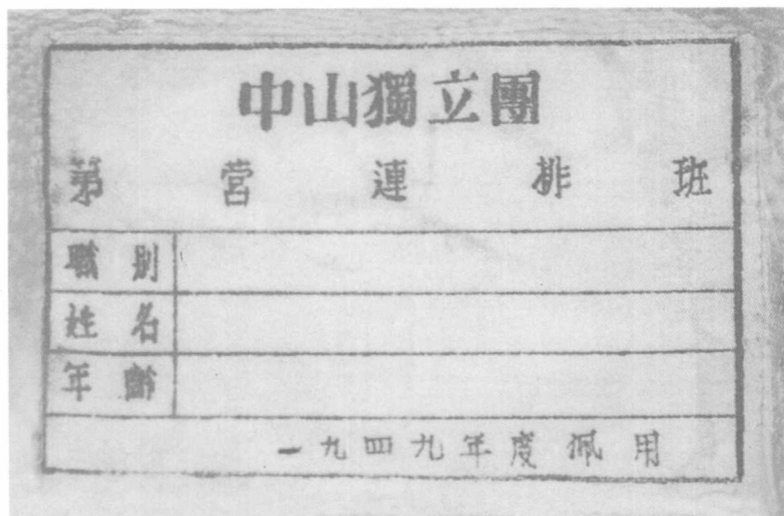 中山獨立團
第 營 連 排 班
職別
姓名
年齡
一九四九年度佩用